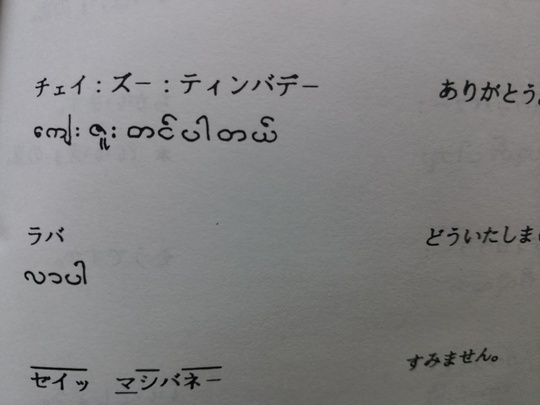 チェイ：ズー：ティンバデー ありがとう。
ကျေးဇူးတင်ပါတယ်
ラバ どういたしま
လာပါ
セイッ マシバネー すみません。